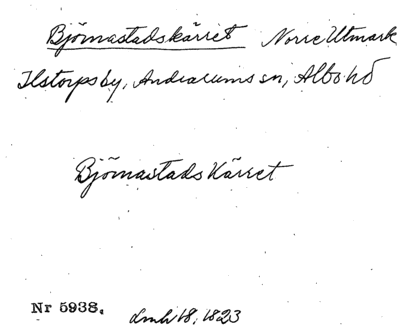 Björnastadskärret Norre Utmark
Ilstorps by, Andrarums sn, Albo hd
Björnastads Kärret
Nr 5938. lmh 18, 1823